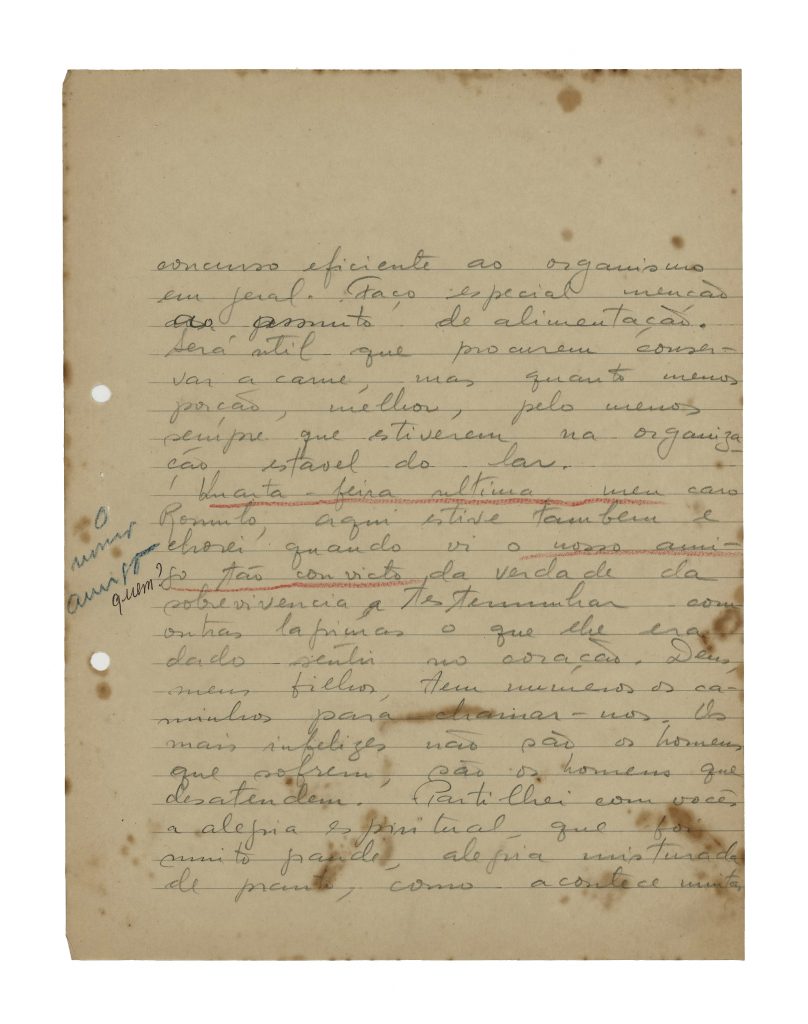 concurso eficiente ao organismo
em geral. Faço especial menção
ao assunto de alimentação.
Será util que procurem conser-
var a carne, mas quanto menos
porção, melhor, pelo menos
sempre que estiverem na organiza-
ção estavel do lar.
Quarta-feira ultima, meu caro
Romulo, aqui estive tambem e
chorei quando vi o nosso ami-
go tão convicto da verdade da
sobrevivencia, a testemunhar com
outras lagrimas o que elle era
dado sentir no coração. Deus,
meus filhos, tem numeros os ca-
minhos para chamar-nos. Os
mais infelizes não são os homens
que sofrem, são os homens que
desatendem. Partilhei com vocês
a alegria espiritual, que foi
muito grande, alegria misturada
de pranto, como acontece muitas
O
nosso
amigo
quem?